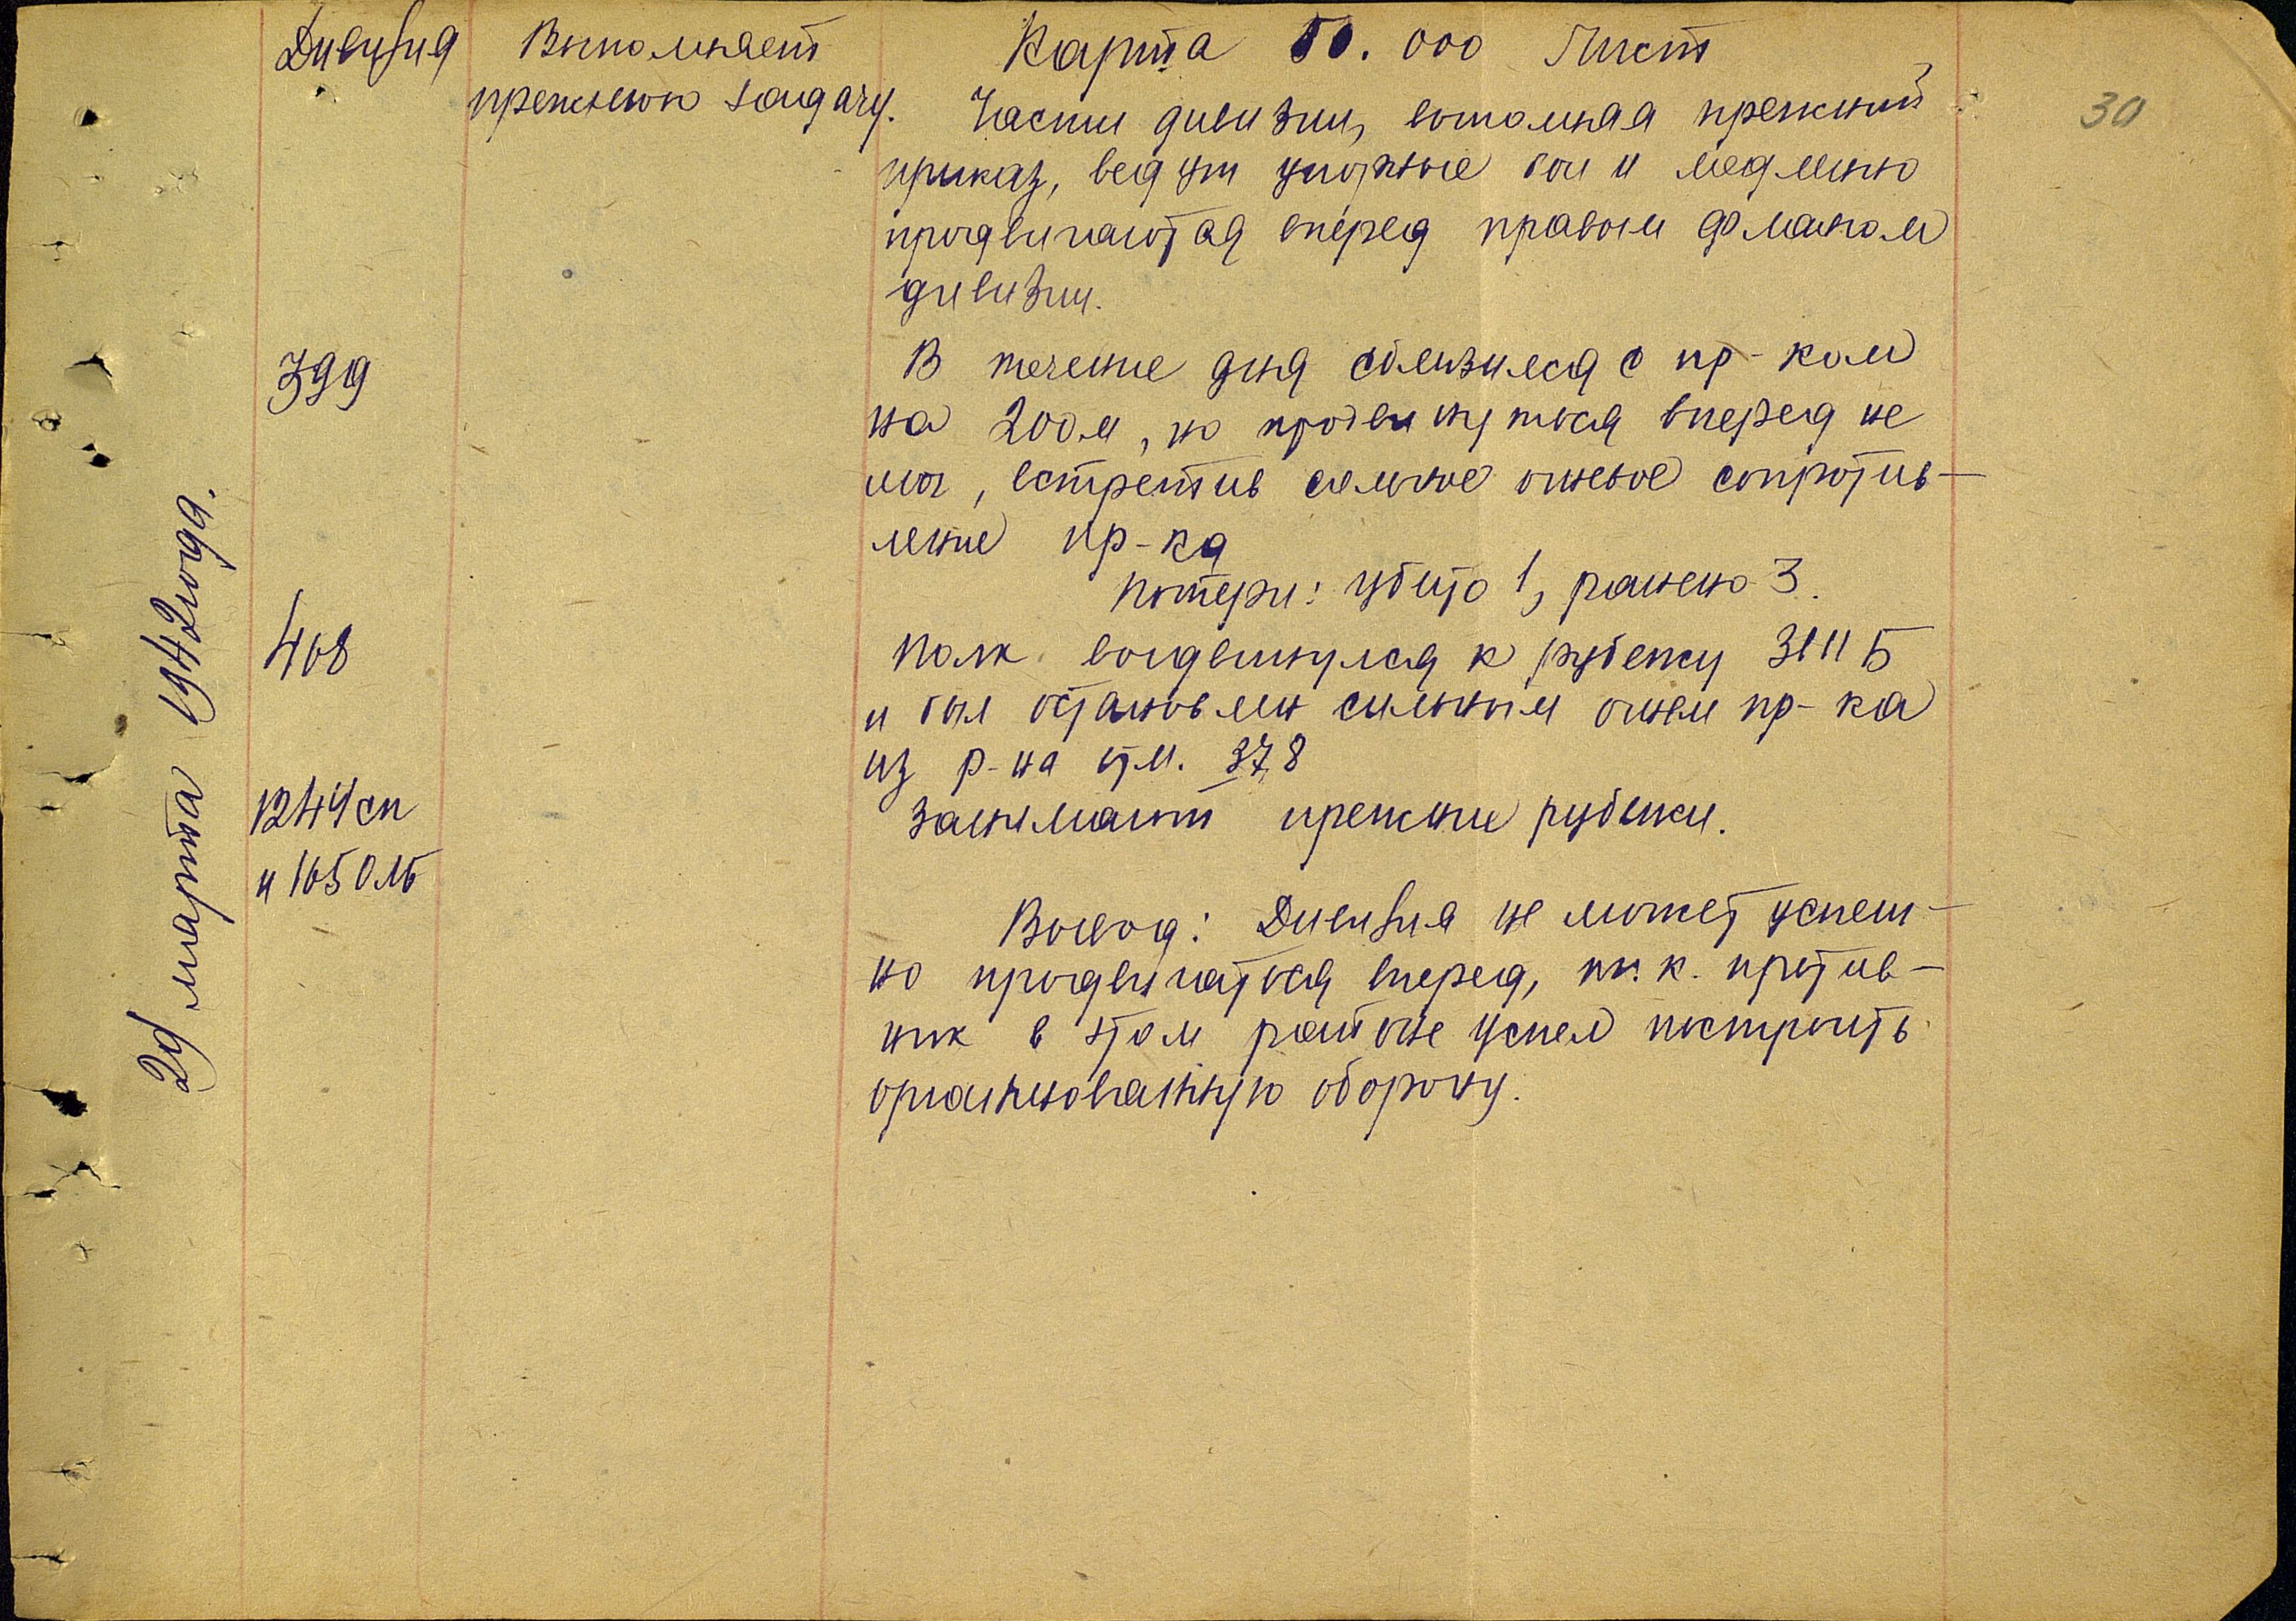 Дивизия Выполняет Карта 50.000 Лист
прежнюю задачу.
30
Части дивизии, выполняя прежний
приказ, ведут упорные бои и медленно
продвигаются вперед правым флангом
дивизии.
29 марта 1942 года.
399
В течение дня сблизился с пр-ком
на 200 м, но продвинуться вперед не
мог, встретив сильное огневое сопротив-
ление пр-ка
Потери: убито 1, ранено 3.
408
Полк выдвинулся к рубежу 3111 Б
и был остановлен сильным огнем пр-ка
из р-на отм. 37,8
1244 сп
и 165 ОЛБ
Занимают прежние рубежи.
Вывод: Дивизия не может успеш-
но продвигаться вперед, т.к. против-
ник в этом районе успел построить
организованную оборону.